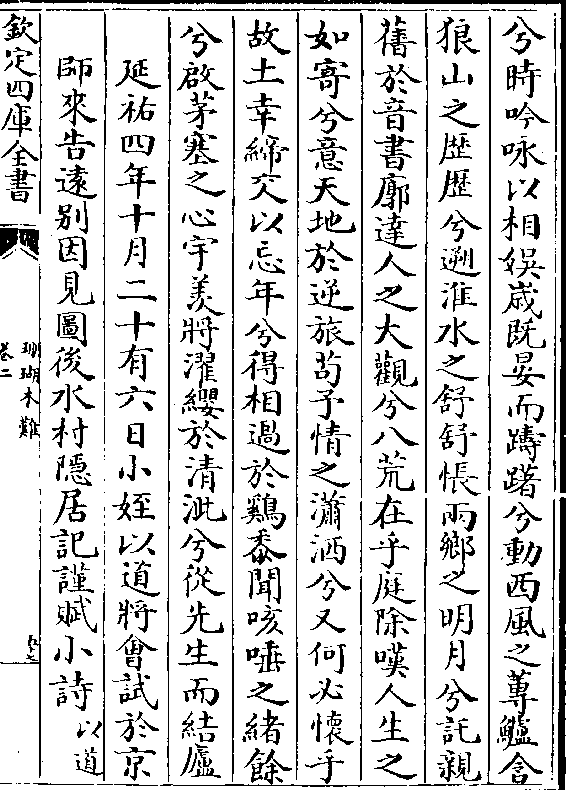 兮時吟咏以相娯歳既晏而躊躇兮動西風之蓴鱸含
狼山之歴歴兮遡淮水之舒舒悵兩鄉之明月兮託親
舊於音書廓達人之大觀兮八荒在乎庭除嘆人生之
如寄兮意天地於逆旅茍予情之瀟洒兮又何必懐乎
故土幸締交以忘年兮得相過於鷄黍聞咳唾之緒餘
兮啟茅塞之心宇羨將濯纓於清泚兮從先生而結廬
延祐四年十月二十有六日小姪以道將會試於京
師來告逺别因見圖後水村隱居記謹賦小詩 以道
欽定四庫全書
珊瑚木難
卷二